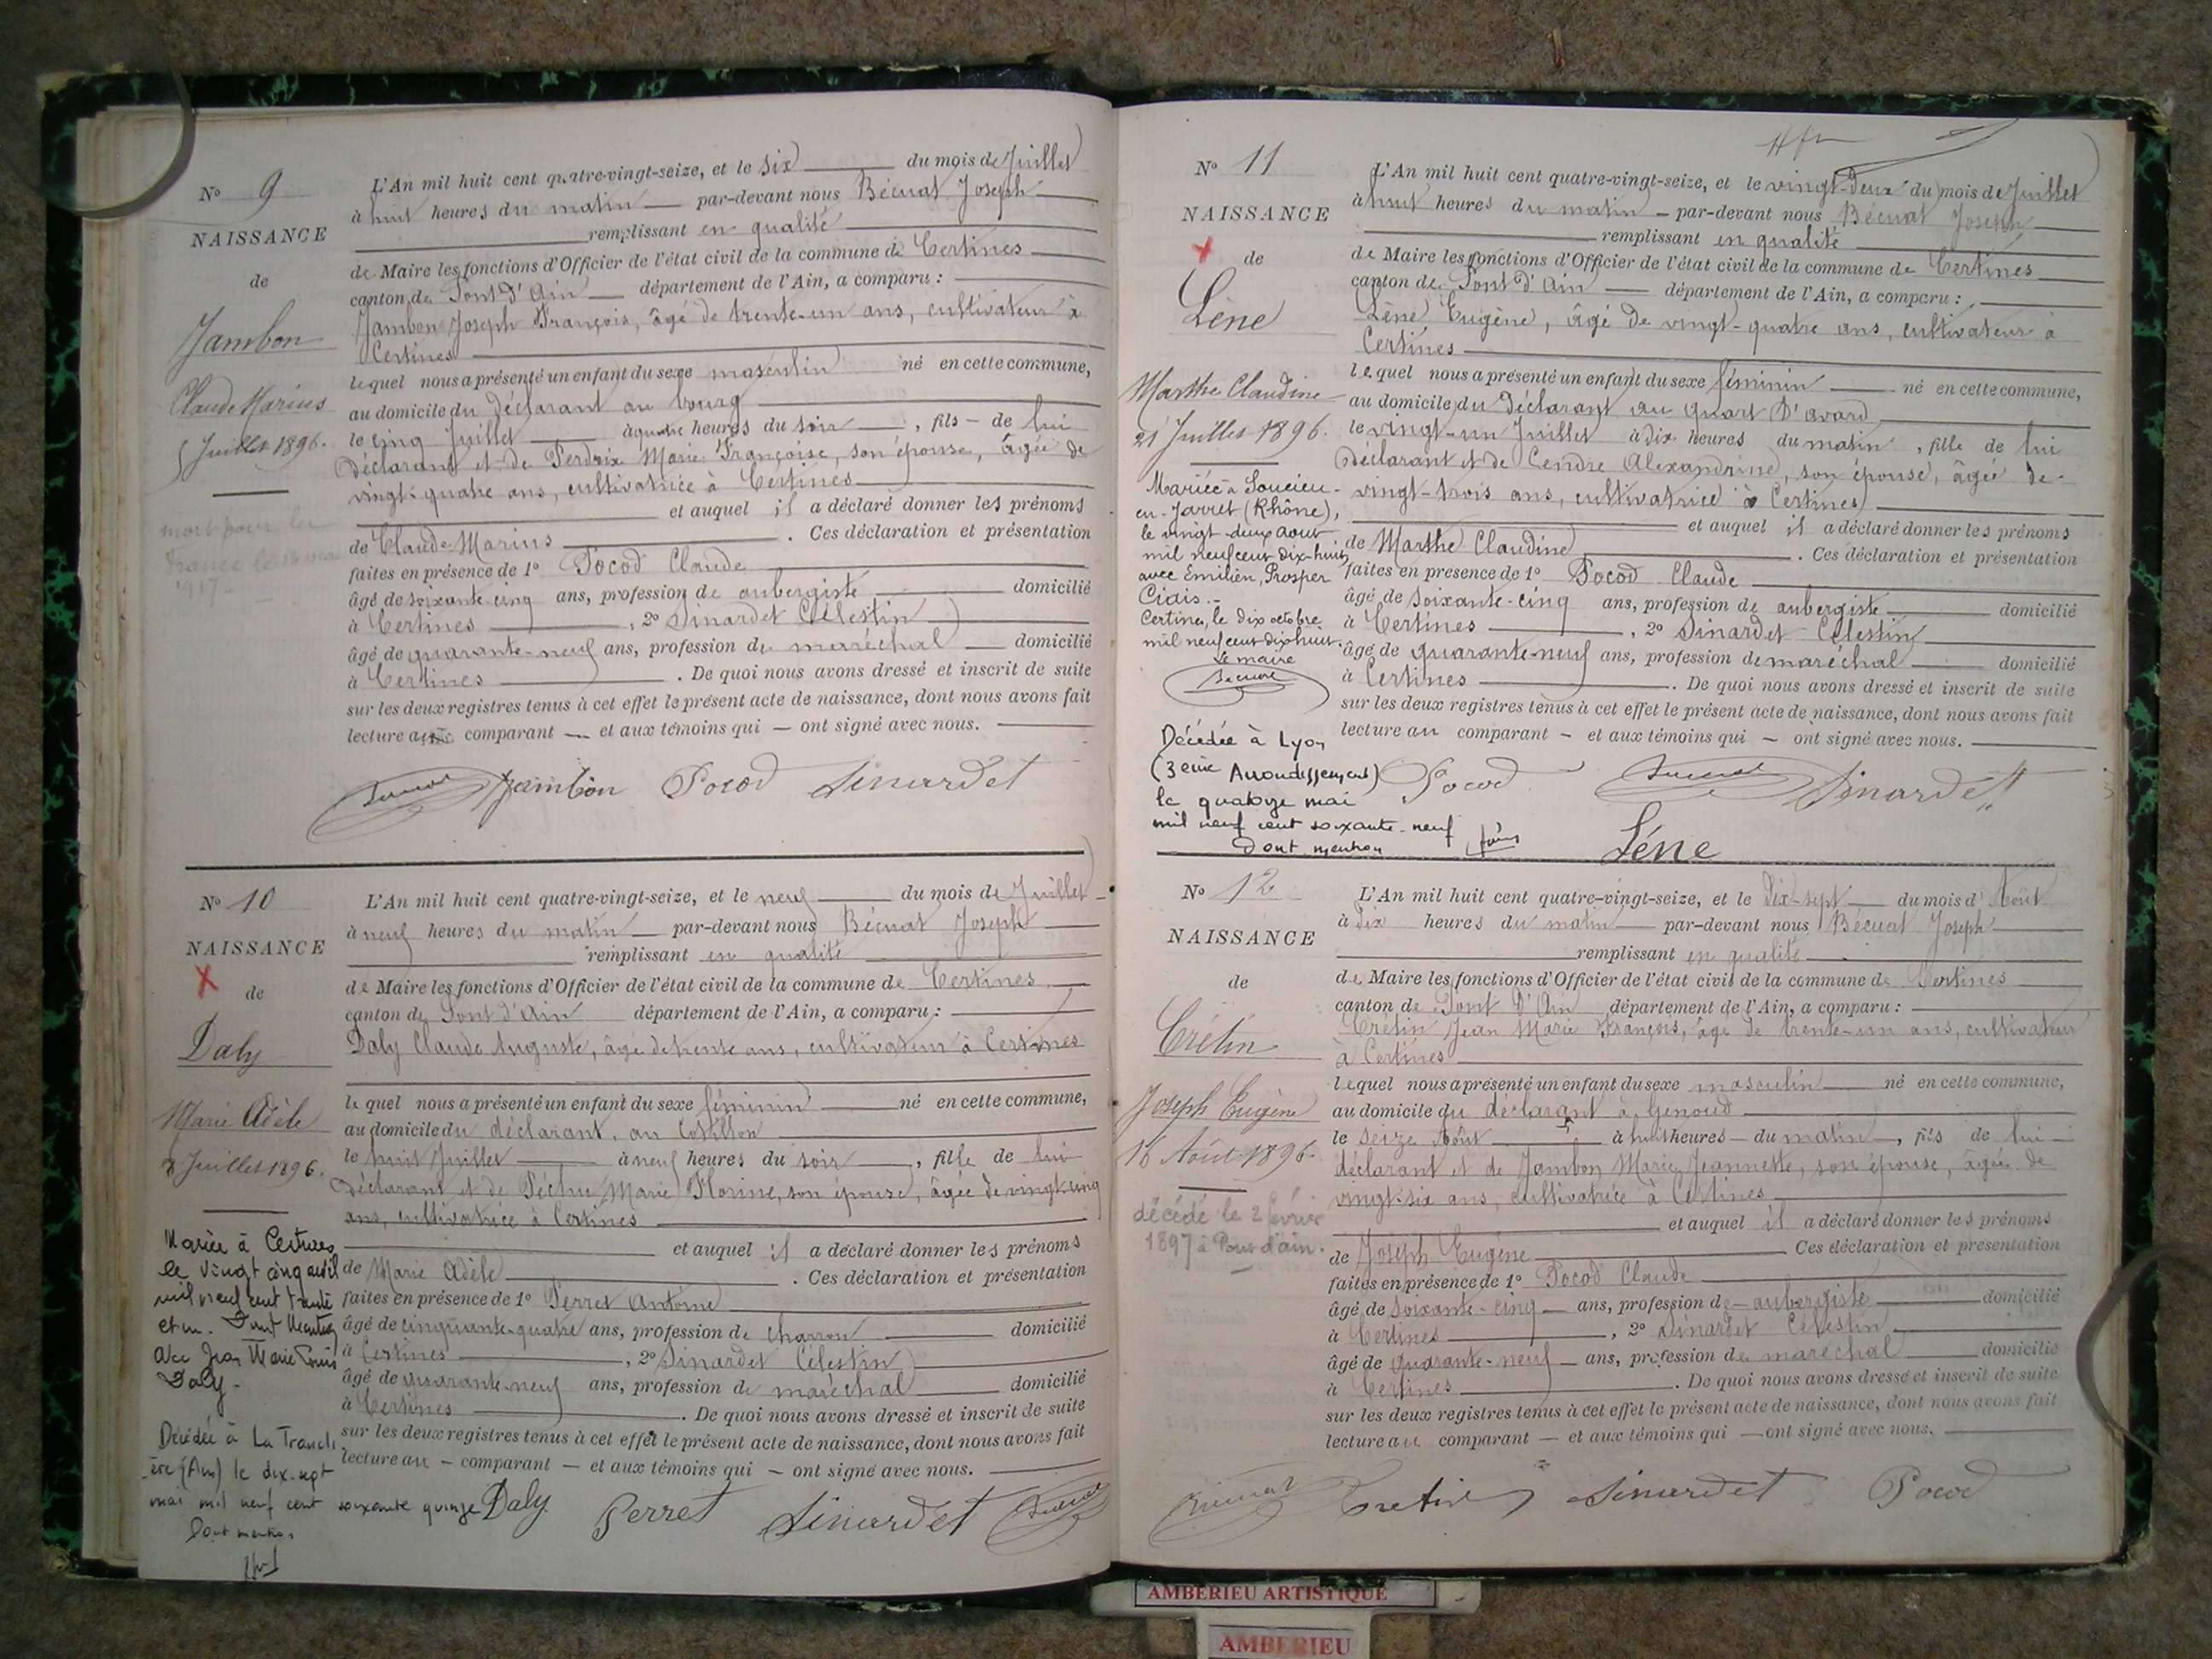 N° 9
NAISSANCE
de
Jambon
Claude Marius
5 Juillet 1896.
mort pour la
France le
1917
L'An mil huit cent quatre-vingt-seize, et le six du mois de Juillet
à huit heures du matin par-devant nous Bécuat Joseph
remplissant en qualité
de Maire les fonctions d'Officier de l'état civil de la commune de Certines
canton de Pont d'Ain département de l'Ain, a comparu :
Jambon Joseph François, âgé de trente-un ans, cultivateur à
Certines
lequel nous a présenté un enfant du sexe masculin né en cette commune,
au domicile du déclarant au bourg
le cinq Juillet à quatre heures du soir, fils de lui
déclarant et de Perdrix Marie Françoise, son épouse, âgée de
vingt-quatre ans, cultivatrice à Certines
et auquel il a déclaré donner les prénoms
de Claude Marius. Ces déclaration et présentation
faites en présence de 1° Pocod Claude
âgé de soixante cinq ans, profession de aubergiste domicilié
à Certines, 2° Sinardet Célestin
âgé de quarante-neuf ans, profession de maréchal domicilié
à Certines. De quoi nous avons dressé et inscrit de suite
sur les deux registres tenus à cet effet le présent acte de naissance, dont nous avons fait
lecture au comparant et aux témoins qui ont signé avec nous.
Jambon Pocod Sinardet
N° 10
NAISSANCE
de
Daly
Marie Adèle
8 Juillet 1896.
Mariée à Certines
le vingt cinq avril
mil neuf cent trente
et un. Dont Mention
avec Jean Marie Louis
Daly.
Décédée à La Tranch
ère (Ain) le dix-sept
mai mil neuf cent soixante quinze
Dont mention
L'An mil huit cent quatre-vingt-seize, et le neuf du mois de Juillet
à neuf heures du matin par-devant nous Bécuat Joseph
remplissant en qualité
de Maire les fonctions d'Officier de l'état civil de la commune de Certines
canton de Pont d'Ain département de l'Ain, a comparu :
Daly Claude Auguste, âgé de trente ans, cultivateur à Certines
lequel nous a présenté un enfant du sexe féminin né en cette commune,
au domicile du déclarant, au Cotillon
le huit Juillet à neuf heures du soir, fille de lui
déclarant et de Péchu Marie Florine, son épouse, âgée de vingt-cinq
ans, cultivatrice à Certines
et auquel il a déclaré donner les prénoms
de Marie Adèle. Ces déclaration et présentation
faites en présence de 1° Perret Antoine
âgé de cinquante-quatre ans, profession de charron domicilié
à Certines, 2° Sinardet Célestin
âgé de quarante-neuf ans, profession de maréchal domicilié
à Certines. De quoi nous avons dressé et inscrit de suite
sur les deux registres tenus à cet effet le présent acte de naissance, dont nous avons fait
lecture au comparant et aux témoins qui ont signé avec nous.
Daly Perret Sinardet
N° 11
NAISSANCE
de
Léne
Marthe Claudine
21 Juillet 1896.
Mariée à Soucieu-
en-Jarret (Rhône),
le vingt-deux août
mil neuf cent dix-huit
avec Emilien, Prosper
Ciais.-
Certines, le dix octobre
mil neuf cent dix huit.
Le maire
Décédée à Lyon
(3eme Arrondissement)
le quatorze mai
mil neuf cent soixante-neuf
Dont mention
L'An mil huit cent quatre-vingt-seize, et le vingt-deux du mois de Juillet
à huit heures du matin par-devant nous Bécuat Joseph
remplissant en qualité
de Maire les fonctions d'Officier de l'état civil de la commune de Certines
canton de Pont d'Ain département de l'Ain, a comparu :
Léne Eugène, âgé de vingt-quatre ans, cultivateur à
Certines
lequel nous a présenté un enfant du sexe féminin né en cette commune,
au domicile du déclarant au quart d'avard
le vingt-un Juillet à dix heures du matin, fille de lui
déclarant et de Cendre Alexandrine, son épouse, âgée de
vingt-trois ans, cultivatrice à Certines
et auquel il a déclaré donner les prénoms
de Marthe Claudine. Ces déclaration et présentation
faites en présence de 1° Pocod Claude
âgé de soixante-cinq ans, profession de aubergiste domicilié
à Certines, 2° Sinardet Célestin
âgé de quarante-neuf ans, profession de maréchal domicilié
à Certines. De quoi nous avons dressé et inscrit de suite
sur les deux registres tenus à cet effet le présent acte de naissance, dont nous avons fait
lecture au comparant et aux témoins qui ont signé avec nous.
Pocod Sinardet
Léne
N° 12
NAISSANCE
de
Crétin
Joseph Eugène
16 Août 1896.
décédé le 2 février
1897 à Pont d'ain.
L'An mil huit cent quatre-vingt-seize, et le dix-sept du mois d'Août
à dix heures du matin par-devant nous Bécuat Joseph
remplissant en qualité
de Maire les fonctions d'Officier de l'état civil de la commune de Certines
canton de Pont d'Ain département de l'Ain, a comparu :
Crétin Jean Marie François, âgé de trente-un ans, cultivateur
à Certines
lequel nous a présenté un enfant du sexe masculin né en cette commune,
au domicile du déclarant à Genoud
le seize Août à huit heures du matin, fils de lui
déclarant et de Jambon Marie Jeannette, son épouse, âgée de
vingt-six ans, cultivatrice à Certines
et auquel il a déclaré donner les prénoms
de Joseph Eugène Ces déclaration et présentation
faites en présence de 1° Pocod Claude
âgé de soixante-cinq ans, profession de aubergiste domicilié
à Certines, 2° Sinardet Célestin
âgé de quarante-neuf ans, profession de maréchal domicilié
à Certines. De quoi nous avons dressé et inscrit de suite
sur les deux registres tenus à cet effet le présent acte de naissance, dont nous avons fait
lecture au comparant et aux témoins qui ont signé avec nous.
Cretin Sinardet Pocod
AMBERIEU ARTISTIQUE
AMBERIEU